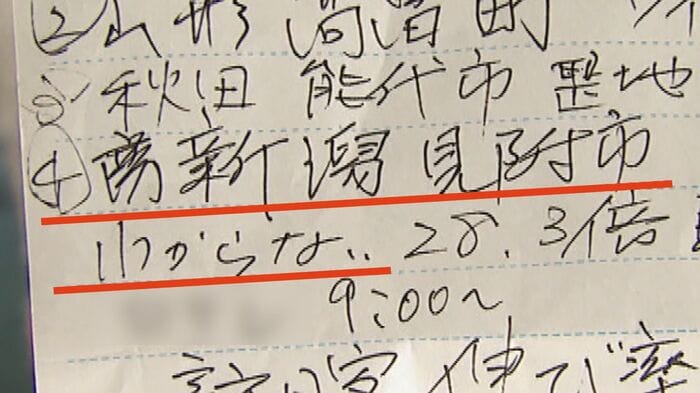 ②山形 町
③秋田 能代市 地
④ 新潟 見附市
わからない 28.3倍
9:00〜
客 伸び率